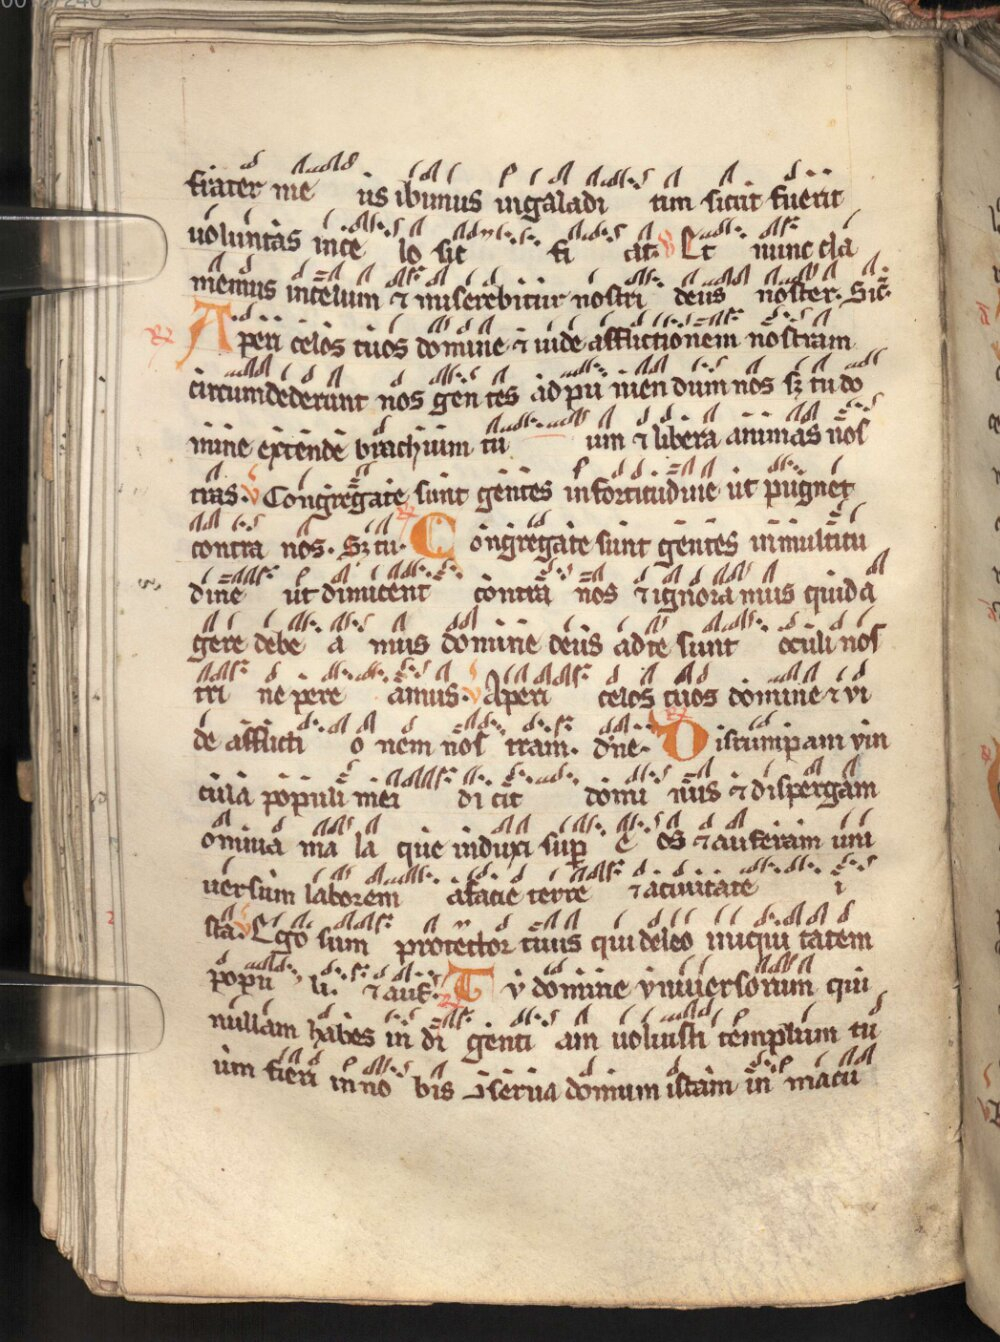 frater me us ibimus in galaad i tim sicut fuerit
voluntas in ce lo sic fi at. V Et nunc cla
memus in celum ⁊ miserebitur nostri deus noster. Sic.
R Aperi celos tuos domine ⁊ vide afflictionem nostram
circumdederunt nos gentes ad puniendum nos sz tu do
mine extende brachium tu um ⁊ libera animas nos
tras. V Congregate sunt gentes in fortitudine ut pugnet
contra nos. Sz tu. R Congregate sunt gentes in multitu
dine ut dimicent contra nos ⁊ ignoramus quid a
gere debe a mus domine deus ad te sunt oculi nos
tri ne pere amus. V Aperi celos tuos domine ⁊ vi
de afflicti o nem nos tram. dne. R Disrumpam vin
cula populi mei di cit domi nus ⁊ dispergam
omnia ma la que induxi sup e os ⁊ auferam uni
versum laborem a facie terre ⁊ a civitate i
sta. V Ego sum protector tuus qui deleo iniqui tatem
popu li. ⁊ auf. R Tu domine universorum qui
nullam habes in di genti am voluisti templum tu
um fieri in no bis conserva domum istam in macu